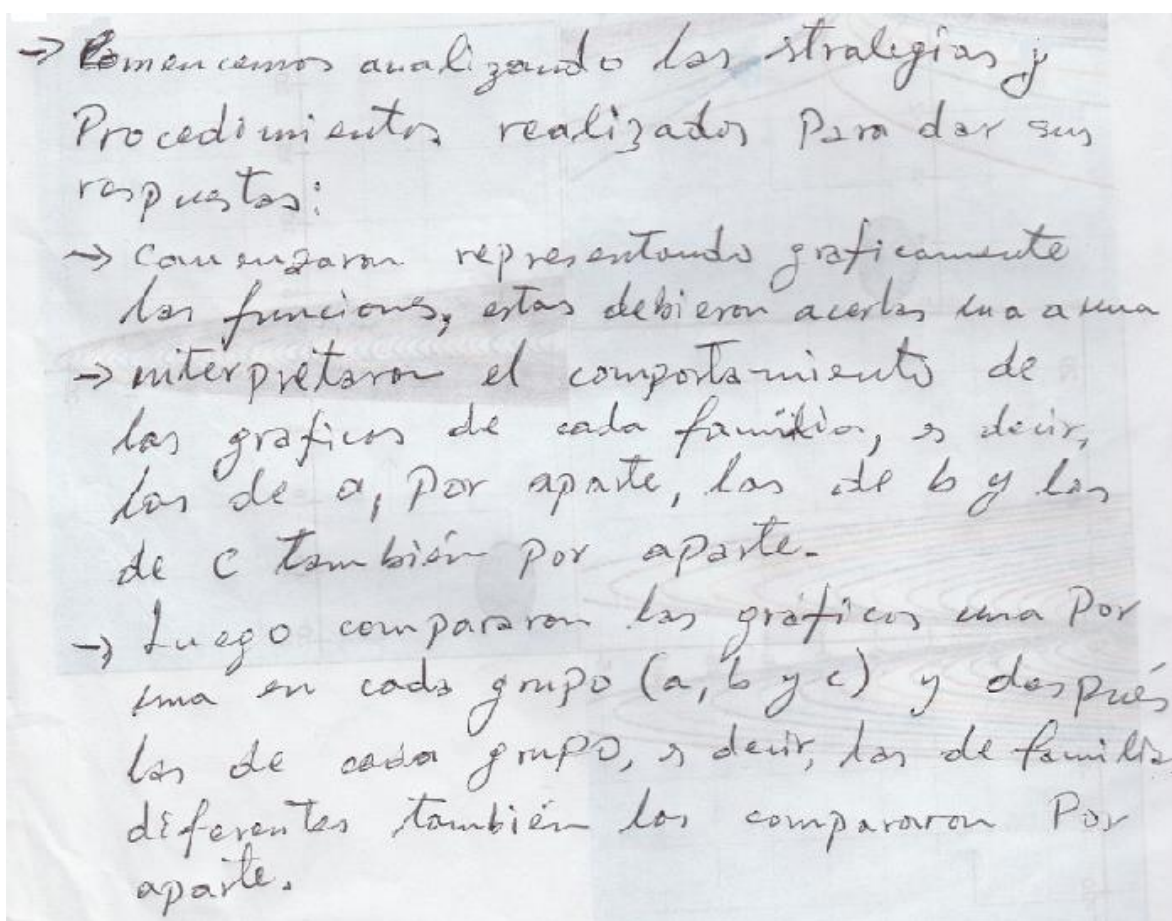 → Comencemos analizando las strategias y
Procedimientos realizados Para dar sus
respuestas:
→ Comenzaron representando graficamente
las funciones, estas debieron acerlas una a una
→ interpretaron el comportamiento de
las graficas de cada familia, es decir,
las de a, Por aparte, las de b y las
de C también por aparte.
→ Luego compararon las gráficas una Por
una en cada grupo (a, b y c) y después
las de cada grupo, es decir, las de familia
diferentes también las compararon Por
aparte.